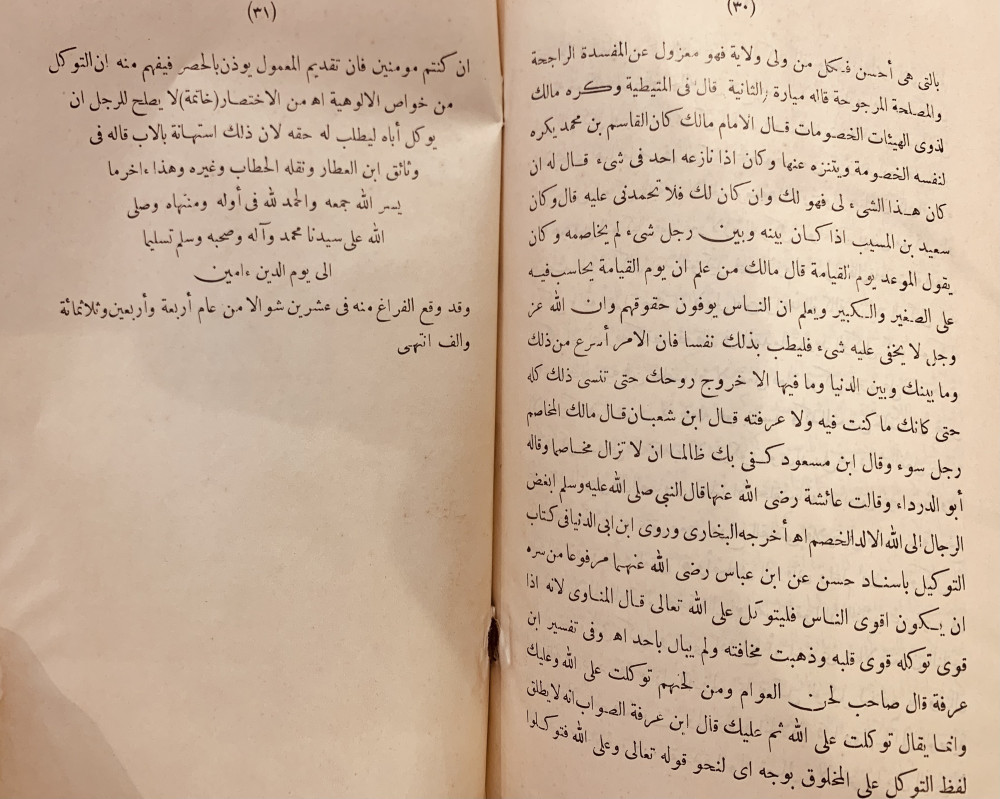 (٣٠)
بالتى هى أحسن فكل من ولى ولاية فهو معزول عن المفسدة الراجحة
والمصلحة المرجوحة قاله ميارة (الثانية) قال فى المتيطية وكره مالك
لذوى الهيئات الخصومات قال الامام مالك كان القاسم بن محمد يكره
لنفسه الخصومة ويتنزه عنها وكان اذا نازعه احد فى شىء قال له ان
كان هذا الشىء لى فهو لك وان كان لك فلا تحمدنى عليه قال وكان
سعيد بن المسيب اذا كان بينه وبين رجل شىء لم يخاصمه وكان
يقول الموعد يوم القيامة قال مالك من علم ان يوم القيامة يحاسب فيه
على الصغير والكبير ويعلم ان الناس يوفون حقوقهم وان الله عز
وجل لا يخفى عليه شىء فليطب بذلك نفسا فان الامر أسرع من ذلك
وما بينك وبين الدنيا وما فيها الا خروج روحك حتى تنسى ذلك كله
حتى كانك ما كنت فيه ولا عرفته قال ابن شعبان قال مالك المخاصم
رجل سوء وقال ابن مسعود كفى بك ظالما ان لا تزال مخاصما وقاله
أبو الدرداء وقالت عائشة رضى الله عنها قال النبي صلى الله عليه وسلم ابغض
الرجال الى الله الالد الخصم اه أخرجه البخارى وروى ابن ابى الدنيا فى كتاب
التوكيل باسناد حسن عن ابن عباس رضى الله عنهما مرفوعا من سره
ان يكون اقوى الناس فليتوكل على الله تعالى قال المناوى لانه اذا
قوى توكله قوى قلبه وذهبت مخافته ولم يبال باحد اه وفى تفسير ابن
عرفة قال صاحب لحن العوام ومن لحنهم توكلت على الله وعليك
وانما يقال توكلت على الله ثم عليك قال ابن عرفة الصواب انه لا يطلق
لفظ التوكل على المخلوق بوجه اى لنحو قوله تعالى وعلى الله فتوكلوا
(٣١)
ان كنتم مومنين فان تقديم المعمول يوذن بالحصر فيفهم منه ان التوكل
من خواص الالوهية اه من الاختصار (خاتمة) لا يصلح للرجل ان
يوكل أباه ليطلب له حقه لان ذلك استهانة بالاب قاله فى
وثائق ابن العطار ونقله الحطاب وغيره وهذا ءاخر ما
يسر الله جمعه والحمد لله فى أوله ومنتهاه وصلى
الله على سيدنا محمد وآله وصحبه وسلم تسليما
الى يوم الدين ءامين
وقد وقع الفراغ منه فى عشرين شوالا من عام أربعة وأربعين وثلاثمائة
والف انتهى